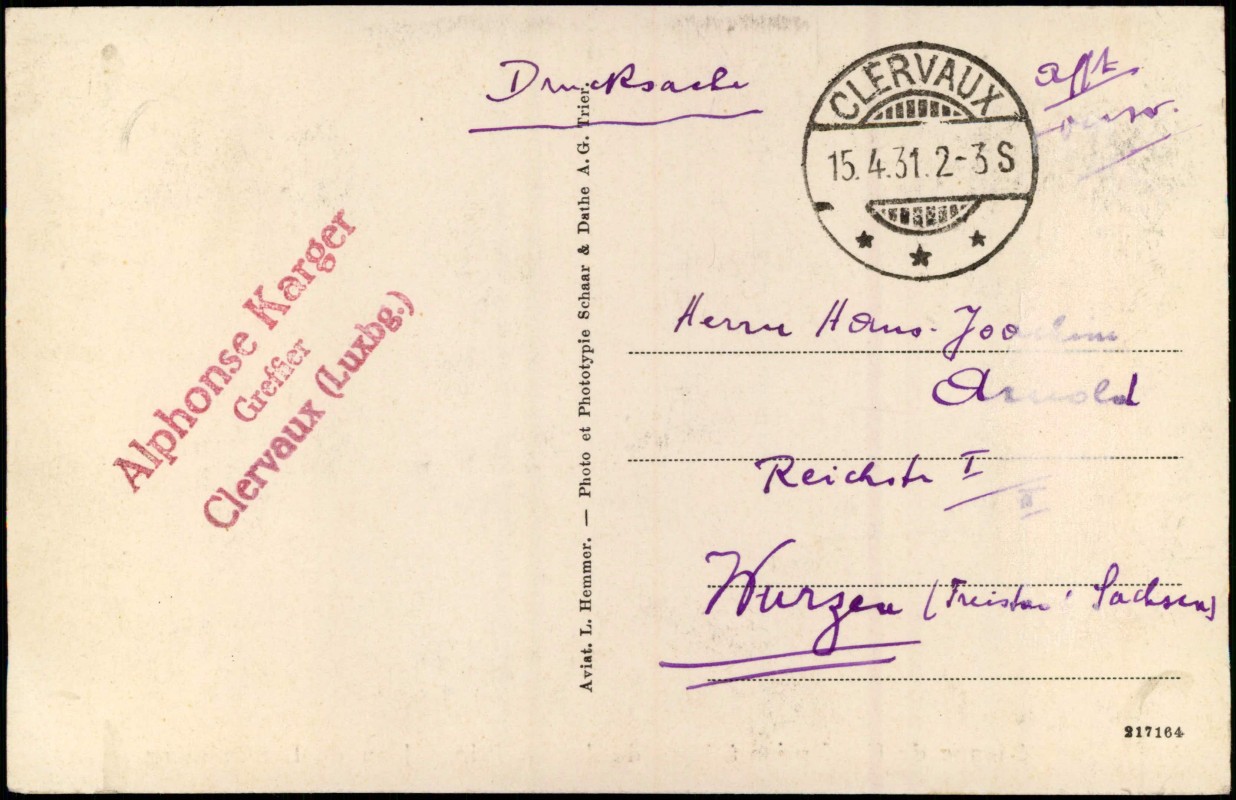 Drucksache
CLERVAUX
15.4.31. 2-3 S
Alphonse Karger
Greffier
Clervaux (Luxbg.)
Aviat. L. Hemmer. — Photo et Phototypie Schaar & Dathe A. G. Trier.
Herrn Hans-Joachim
Arnold
Reichstr I
II
Wurzen (Freistaat Sachsen)
217164